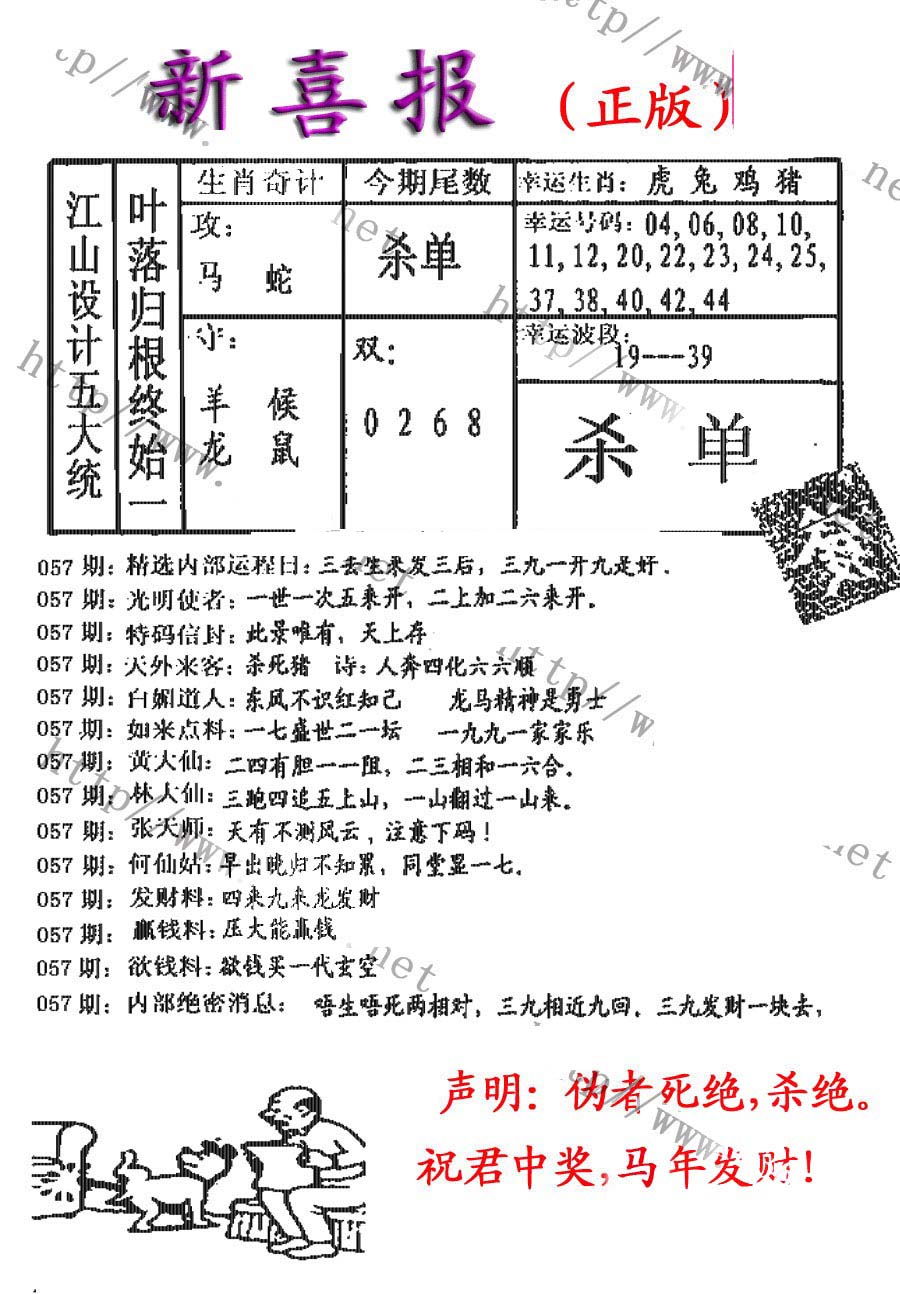 新喜报（正版）
江山设计五大统
叶落归根终始一
生肖奇计
攻：
马 蛇
守：
羊 候
龙 鼠
今期尾数
杀单
双：
0 2 6 8
幸运生肖：虎 兔 鸡 猪
幸运号码：04,06,08,10,
11,12,20,22,23,24,25,
37,38,40,42,44
幸运波段：
19---39
杀 单
057期：精选内部运程日：三丢生来发三后，三九一开九是好．
057期：光明使者：一世一次五来开，二上加二六来开。
057期：特码信封：此景唯有，天上存
057期：天外来客：杀死猪 诗：人奔四化六六顺
057期：白媚道人：东风不识红知己 龙马精神是勇士
057期：如米点料：一七盛世二一坛 一九九一家家乐
057期：黄大仙：二四有胆一一阻，二三相和一六合。
057期：林大仙：三跑四追五上山，一山翻过一山来。
057期：张天师：天有不测风云，注意下码！
057期：何仙姑：早出晚归不知累，同堂显一七。
057期：发财料：四来九来龙发财
057期：赢钱料：压大能赢钱
057期：欲钱料：欲钱买一代玄空
057期：内部绝密消息：唔生唔死两相对，三九相近九回．三九发财一块去，
声明：伪者死绝,杀绝。
祝君中奖,马年发财!